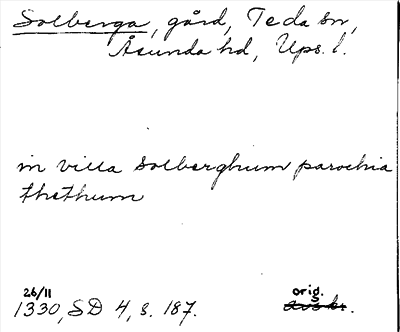 Solberga, gård, Teda sn,
Åsunda hd, Ups. l.
in villa Solberghum parochia
thethum
26/11 orig.
1330, SD 4, s. 187. avskr.